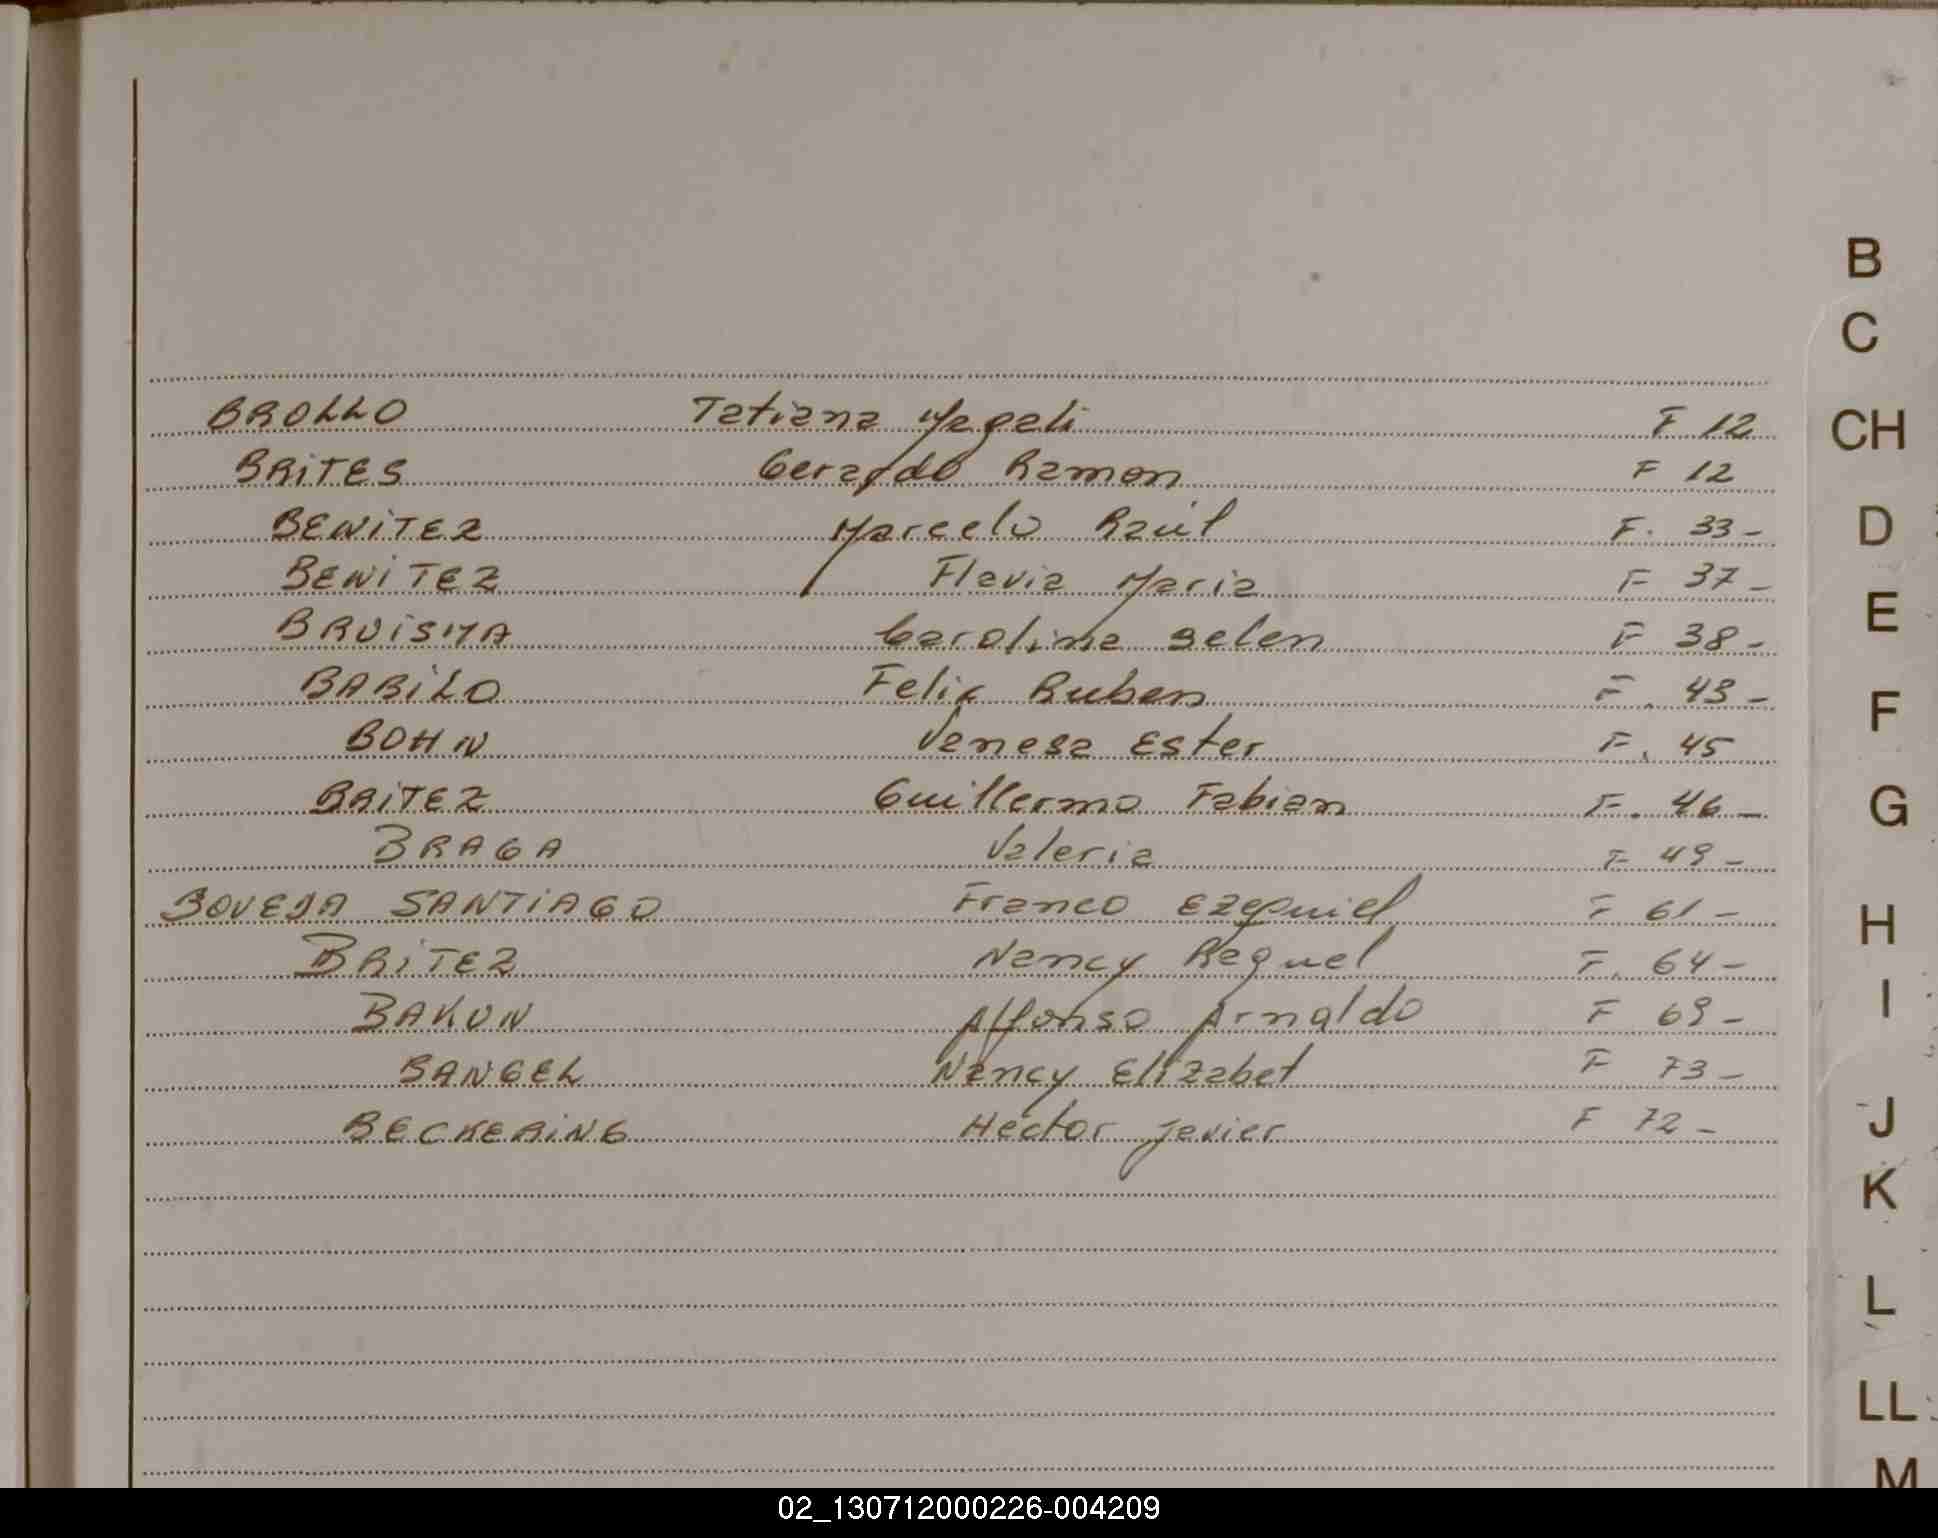 BROLLO Tatiana Magali F 12
BRITES Gerardo Ramon F 12
BENITEZ Marcelo Raúl F. 33-
BENITEZ Flavia Maria F 37-
BRUISMA Carolina Belen F 38-
BABILO Felix Ruben F. 43-
BOHN Vanesa Ester F. 45
BRITEZ Guillermo Fabian F. 46-
BRAGA Valeria F 49-
BOVEDA SANTIAGO Franco Ezequiel F 61-
BRITEZ Nancy Raquel F. 64-
BAKUN Affonso Arnaldo F 69-
BANGEL Nancy Elizabet F 73-
BECKERING Hector Javier F 72-
B
C
CH
D
E
F
G
H
I
J
K
L
LL
M
02_130712000226-004209